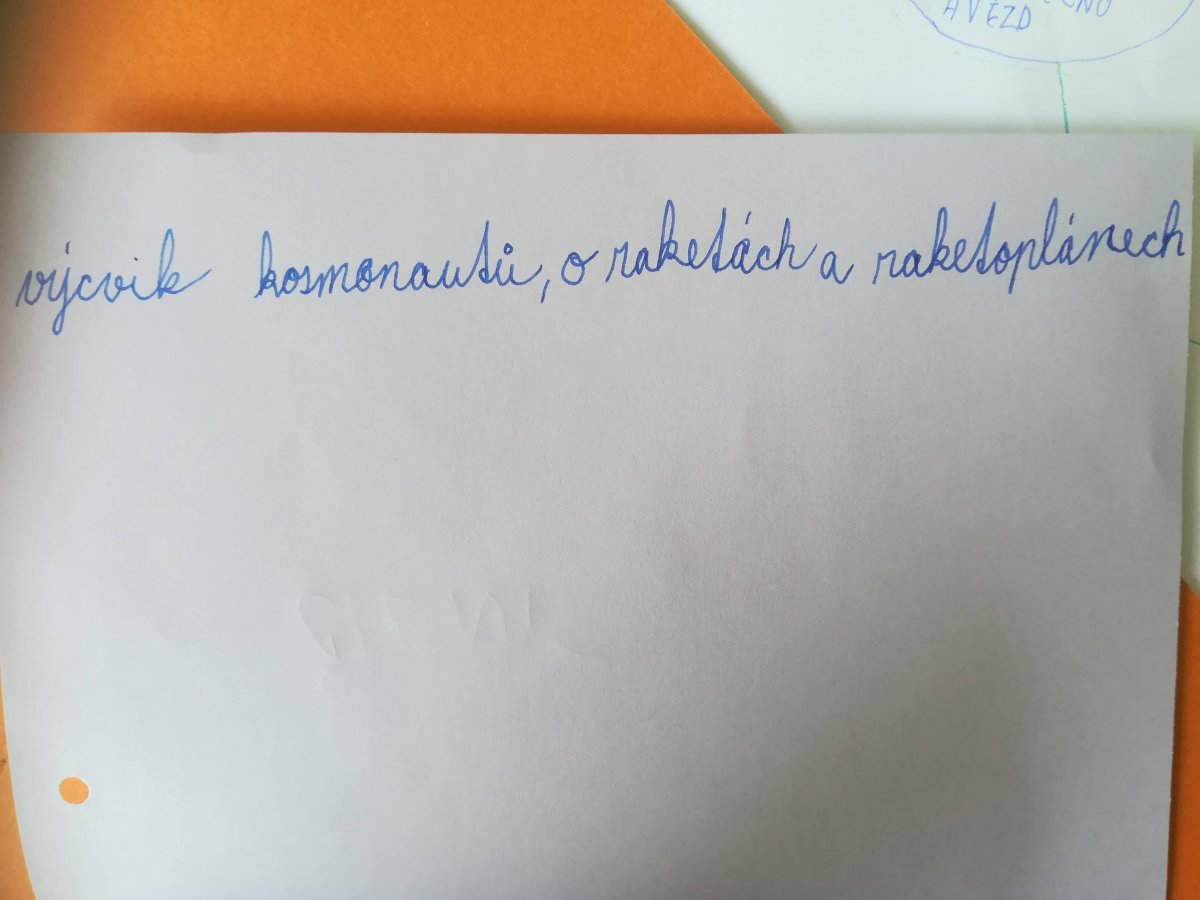 A VĚZD
výcvik kosmonautů, o raketách a raketoplánech